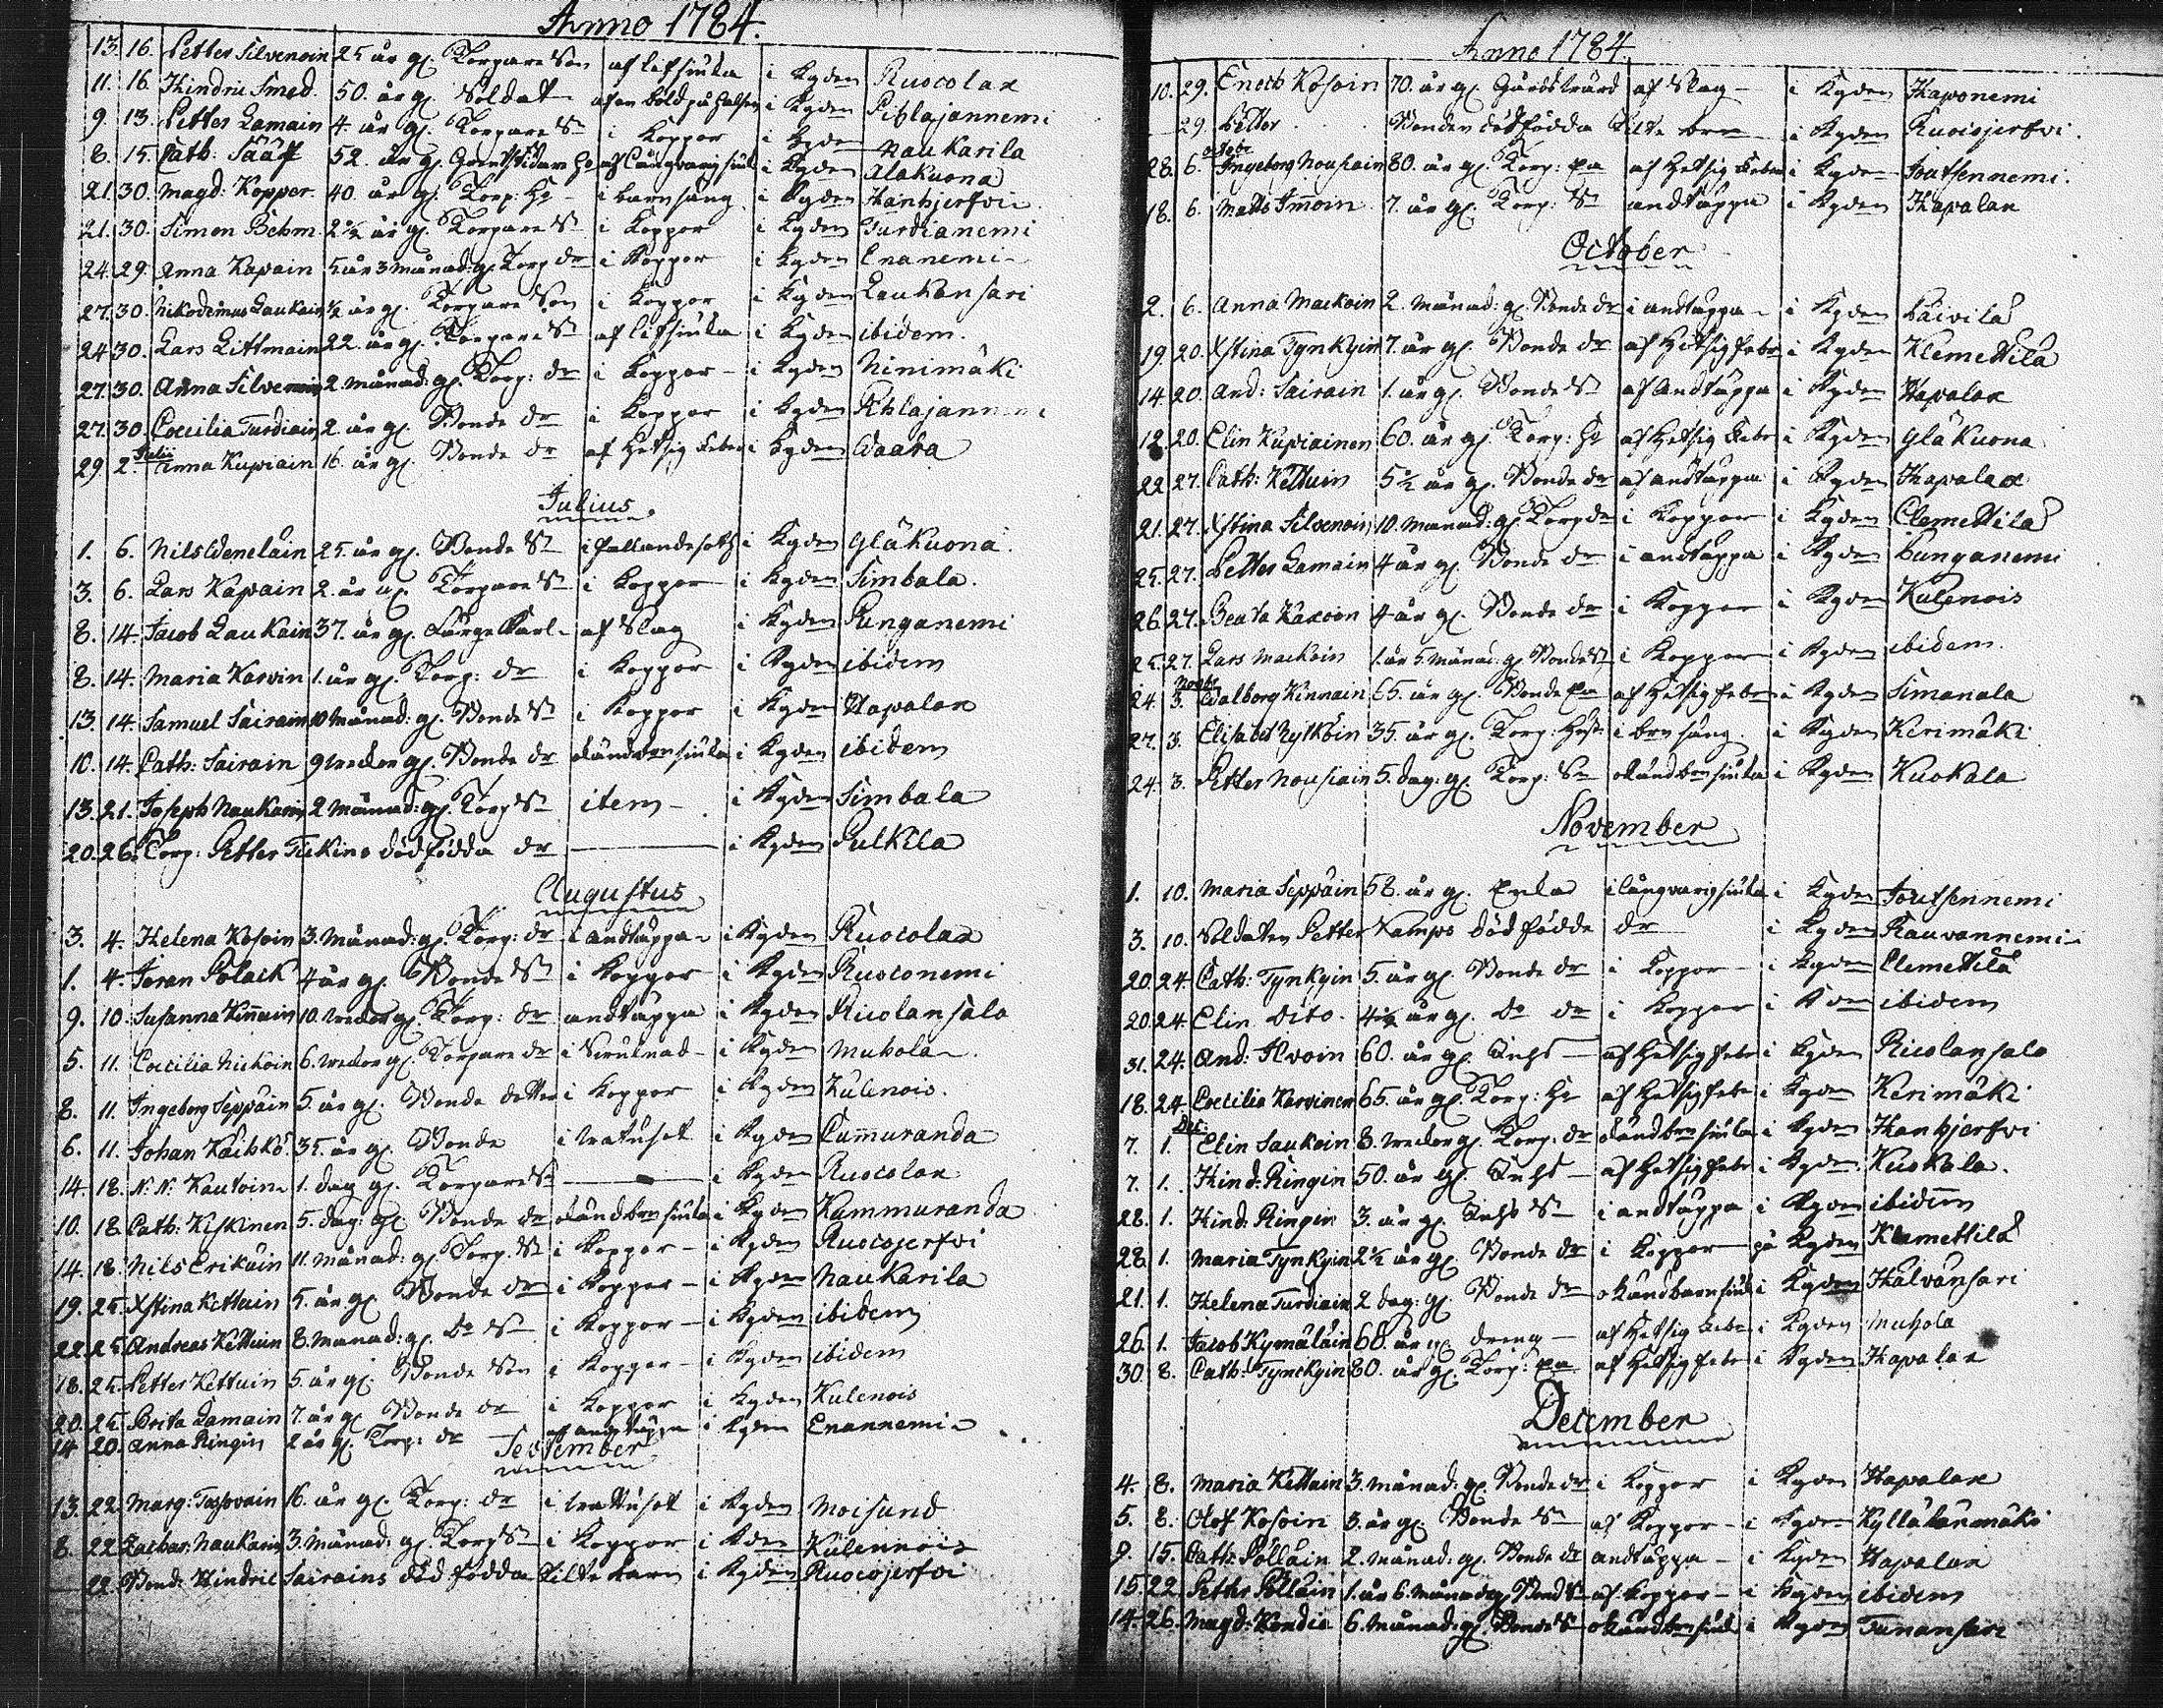 Anno 1784.
13. 16. Petter Silvenoin 25 år gl. Torpare Son af lefsiuka i Kyden Ruocolax
11. 16. Hindric Smed. 50. år gl. Soldat af en böld på halsen i Kyden Pihlajannemi
9. 13. Petter Lamain 4 år gl. Torpare Sn i Koppor i Kyden Naukarila
8. 15. Cath: Sääf 52. år gl. af långvarig siuk i Kyden Alakuona
21. 30. Magd: Kopper. 40. år gl. Torp: Hu i barnsäng i Kyden Hanhjerfvi
21. 30. Simon Böhm. 2½ år gl. Torpare Sn i Koppor i Kyden Turdianemi
24. 29. Anna Kapain 5 år 3 månad: gl Torp dr i Koppor i Kyden Enanemi
27. 30. Nikodemus Laukain ½ år gl. Torpare Son i Koppor i Kyden Laukansari
24. 30. Lars Littmain 22. år gl. Torpare Sn af lefsiuka i Kyden ibidem.
27. 30. Anna Silvenoin 2. månad: gl. Torp: dr i Koppor i Kyden Ninimäki
27. 30. Coecilia Turdiain 2. år gl. Bonde dr i Koppor i Kyden Pihlajannemi
29. 2. Julii Anna Kupiain 16. år gl. Bonde dr af hetsig feber i Kyden Waara
Julius.
1. 6. Nils Weneläin 25. år gl. Bonde Sn i fallandesoth i Kyden Yläkuona.
3. 6. Lars Kapain 2. år gl. Torpare Sn i Koppor i Kyden Simbala.
8. 14. Jacob Laukain 37. år gl. af Slag i Kyden Punganemi
8. 14. Maria Karvin 1. år gl. Torp: dr i Koppor i Kyden ibidem
13. 14. Samuel Sairain 10 Månad: gl. Bonde Sn i Koppor i Kyden Hapalax
10. 14. Cath: Sairain 9 weckor gl. Bonde dr okänd brn siuka i Kyden ibidem
13. 21. Joseph Naukarin 2 Månad: gl. Torp Sn item i Kyden Simbala
20. 26. Torp: Petter Tiikins dödfödda dr i Kyden Pulkila
Augustus
3. 4. Helena Kosoin 3. Månad: gl. Torp: dr i andtäppa i Kyden Ruocolax
1. 4. Joran Polack 4 år gl. Bonde Sn i Koppor i Kyden Ruoconemi
9. 10. Susanna Kinnuin 10. weckor gl. Torp: dr andtäppa i Kyden Ruolansalo
5. 11. Coecilia Nickoin 6. weckor gl. Torpare dr i i Kyden Muhola
8. 11. Ingeborg Seppäin 5. år gl. Bonde dotter i Koppor i Kyden Kulenois.
6. 11. Johan Kaihko. 35. år gl. Bonde i watusot i Kyden Cummuranda
14. 18. N: N: Kautoin 1. dag gl. Torpare Sn i Kyden Ruocolax
10. 18. Cath: Kiskinen 5. dag: gl. Bonde dr okänd brn siuka i Kyden Kummuranda
14. 18. Nils Erikäin 11. Månad: gl. Torp. Sn i Koppor i Kyden Ruocojerfvi
19. 25. Xstina Kettuin 5. år gl. Bonde dr i Koppor i Kyden Naukarila
22. 25. Andreas Kettuin 8. månad: gl. Do Sn i Koppor i Kyden ibidem
18. 25. Petter Kettuin 5. år gl. Bonde Son i Koppor i Kyden ibidem
20. 25. Brita Lamain 7. år gl. Bonde dr i Koppor i Kyden Kulenois
14. 20. Anna Ringin 2 år gl. Torp: dr af andtäppa i Kyden Enannemi
September
13. 22. Marg: Taskvain 16. år gl. Torp: dr i wattusot i Kyden Moisund
8. 22. Zachar: Naukarin 3. Månad: gl. Torp Sn i Koppor i Kyden Kulennois
22. Bond: Hindric Sairains död födda äkta barn i Kyden Ruocojerfvi
Anno 1784.
10. 29. Enoch Kosoin 70. år gl. Gårds af Slag i Kyden Haponemi
29. Petter Bonden dödfödda äkta brn i Kyden Ruocojerfvi.
28. 6. octobr Ingeborg Nousiain 80. år gl. Torp: Ea af hetsig feber i Kyden Joutsennemi.
18. 6. Matts Immoin 7. år gl. Torp: Sn andtäppa i Kyden Hapalax
October
2. 6. Anna Mackoin 2. månad: gl. Bonde dr i andtäppa i Kyden Päivilä
19. 20. Xstina Tynkyin 7. år gl. Bonde dr af hetsig feber i Kyden Klemettila
14. 20. And: Sairain 1. år gl. Bonde Sn af andtäppa i Kyden Hapalax
12. 20. Elin Kupiainen 60. år gl. Torp: Hu af hetsig feber i Kyden Yläkuona
22 27. Cath: Kettuin 5½ år gl. Bonde dr af andtäppa i Kyden Hapalax
21. 27. Xstina Silvenoin 10. månad: gl Torp dr i Koppor i Kyden Clemettila
25. 27. Petter Lamain 4 år gl. Bonde dr i andtäppa i Kyden Punganemi
26. 27. Beata Kaxoin 4 år gl. Bonde dr i Koppor i Kyden Kulenois
25. 27. Lars Mackoin 1. år 5. månad: gl Bonde Sn i Koppor i Kyden ibidem.
24. 3. Novbr Walborg Kinnain 65. år gl. Bonde Ea af hetsig feber i Kyden Simanala
27. 3. Elisabet Rytköin 35. år gl. Torp: Hust: i brn säng. i Kyden Kerimäki
24. 3. Petter Nousiain 5. dag: gl. Torp: Sn okänd brn siuka i Kyden Kuokala
November
1. 10. Maria Seppäin 58. år gl. Enka i långvarig siuka i Kyden Joutsennemi
3. 10. Soldaten Petter Kamps död födde dr i Kyden Rauvannemi
20. 24. Cath: Tynkyin 5. år gl. Bonde dr i Koppor i Kyden Clemettila
20. 24. Elin Dito. 4½ år gl. Do dr i Koppor i Kyden ibidem
31. 24. And: Ilvoin 60. år gl. Inhs af hetsig feber i Kyden Ruolansalo
18. 24. Coecilia Karvinen 65. år gl. Torp: Hu af hetsig feber i Kyden Kerimäki
7. 1. Dec: Elin Laukoin 8. weckor gl. Torp: dr okänd brn siuka i Kyden Hanhjerfvi
7. 1. Hind: Ringin 50. år gl. Inhs af hetsig feber i Kyden Kuokala.
28. 1. Hind: Ringin 3. år gl. Inhs Sn i andtäppa i Kyden ibidem
28. 1. Maria Tynkyin 2½ år gl. Bonde dr i Koppor på Kyden Klemettila
21. 1. Helena Turdiain 2 dag: gl. Bonde dr okänd barnsiuk i Kyden Hälvänsari
26. 1. Jacob Kymäläin 68. år gl. dreng af hetsig feber i Kyden Muhola
30. 8. Cath: Tynckyin 80. år gl. Torp: Ea af hetsig feber i Kyden Hapalax
December
4. 8. Maria Kettuin 3. månad: gl. Bonde dr i Koppor i Kyden Hapalax
5. 8. Olof Kosoin 3. år gl. Bonde Sn af Koppor i Kyden Kyllälänmäki
9. 15. Cath: Pölläin 2. månad: gl. Bonde dr andtäppa i Kyden Hapalax
15. 22. Petter Pölläin 1. år 6. månad gl Bond Sn af Koppor i Kyden ibidem
14. 26. Magd: Kondia 6. Månad: gl. Bonde Sn okänd brn siuk i Kyden Tunansari